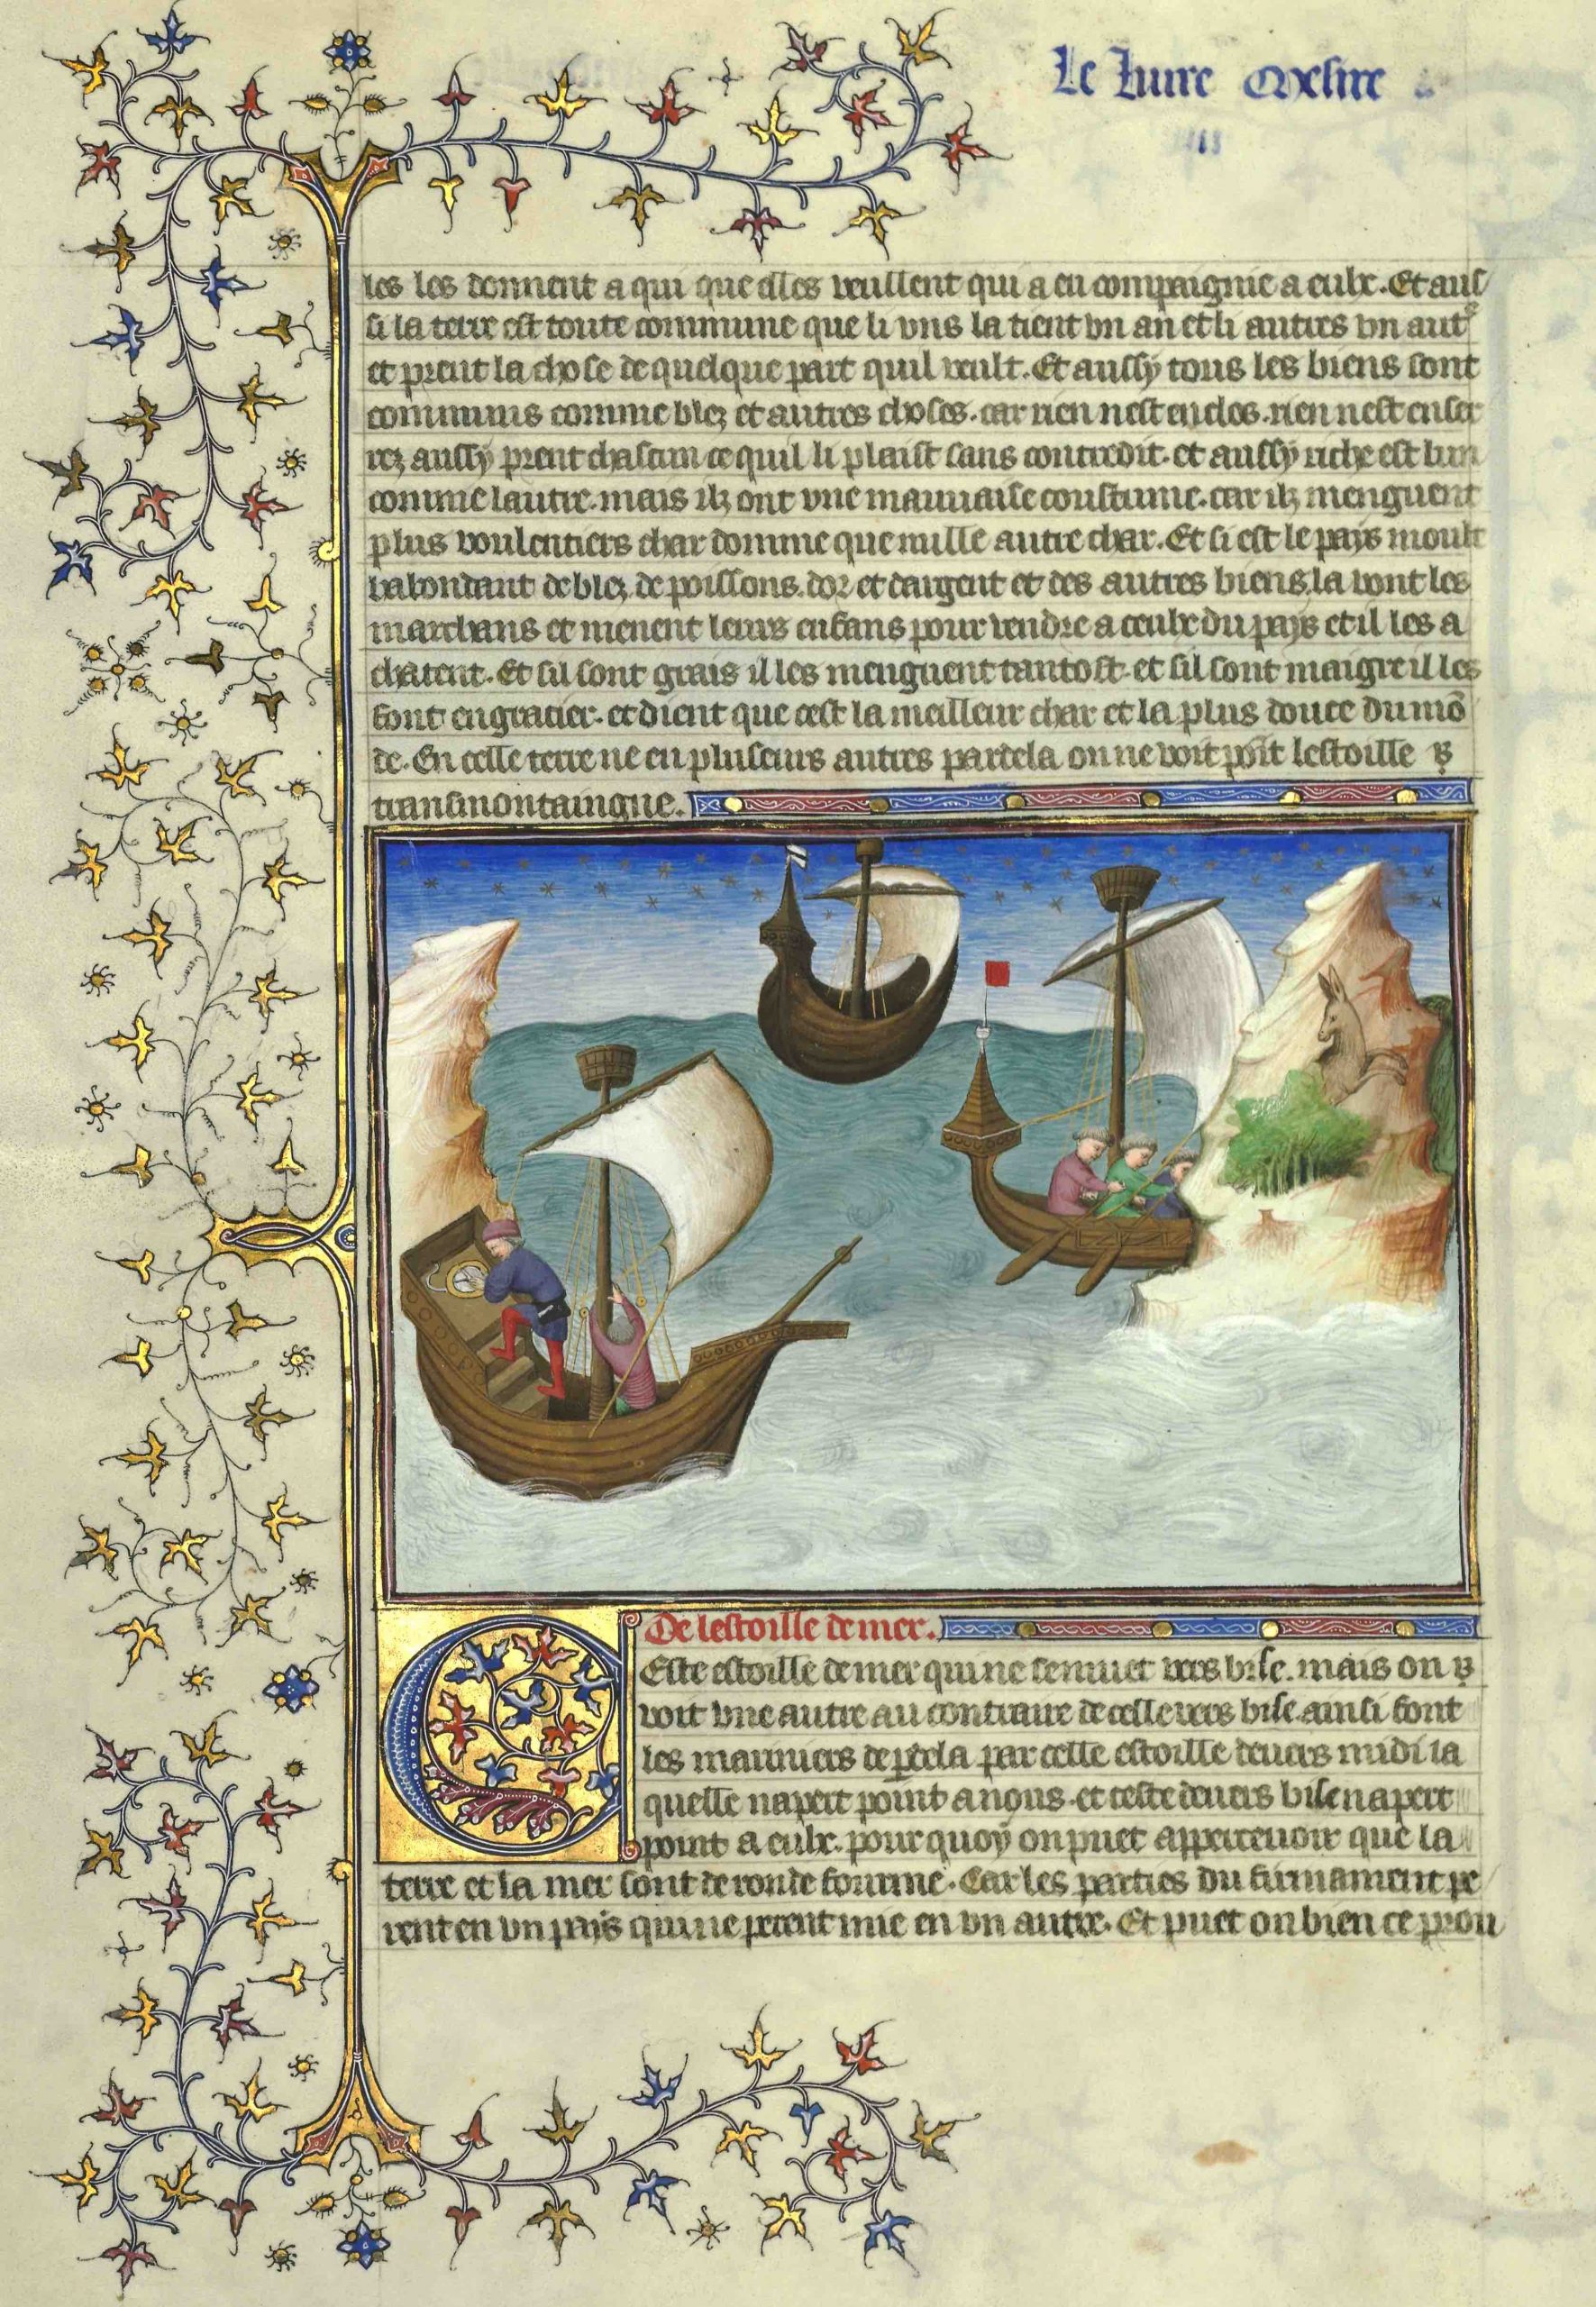 Le liure Messire
les les donnent a qui que elles veullent qui a eu compaignie a eulx. Et auſ
ſi la terre eſt toute commune que li vns la tient vn an et li autres vn aut
et prent la choſe de quelque part quil veult. Et auſſy tous les biens ſont
communs comme blez et autres choſes. car rien neſt enclos. rien neſt enſer
rez auſſy prent chaſcun ce quil li plaiſt ſans contredit. et auſſy riche eſt lun
comme lautre. mais ilz ont vne mauuaiſe couſtume. car ilz menguent
plus voulentiers char domme que nulle autre char. Et ſi eſt le pays moult
habondant de blez. de poiſſons. dor et dargent et des autres biens. la vont les
marchans et menent leurs enfans pour vendre a ceulx du pays et il les a
chatent. Et ſil ſont gras il les menguent tantoſt. et ſil ſont maigre il les
font engracier. et dient que ceſt la meilleur char et la plus douce du mō
de. En celle terre ne en pluſeurs autres par dela on ne voit poīt leſtoille
tranſmontaingne.
De leſtoille de mer.
Ceſte eſtoille de mer qui ne ſe muet vers biſe. mais on
voit vne autre au contraire de celle vers biſe. ainſi font
les mariniers de ꝑdela par celle eſtoille deuers midi la
quelle napert point a nous. et ceſte deuers biſe napert
point a eulx. pour quoy on puet apperceuoir que la
terre et la mer ſont de ronde fourme. Car les parties du firmament pe
rent en vn pays qui ne perent mie en vn autre. Et puet on bien ce prou